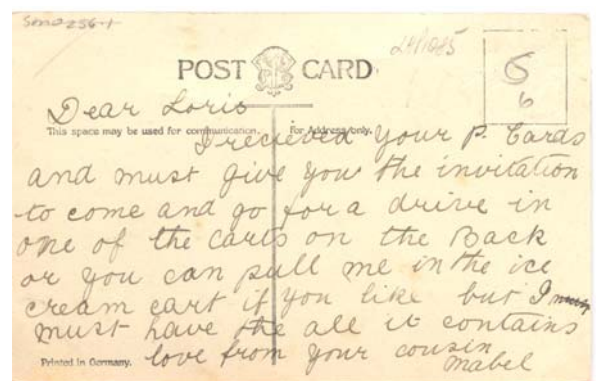 SM0256-1
24/1085
POST CARD
5
6
Dear Loris
This space may be used for communication. For Address only.
I recieved your P. Cards
and must give you the invitation
to come and go for a drive in
one of the carts on the Back
or you can pull me in the ice
cream cart if you like but I must
must have the all it contains
Printed in Germany. love from your cousin
Mabel